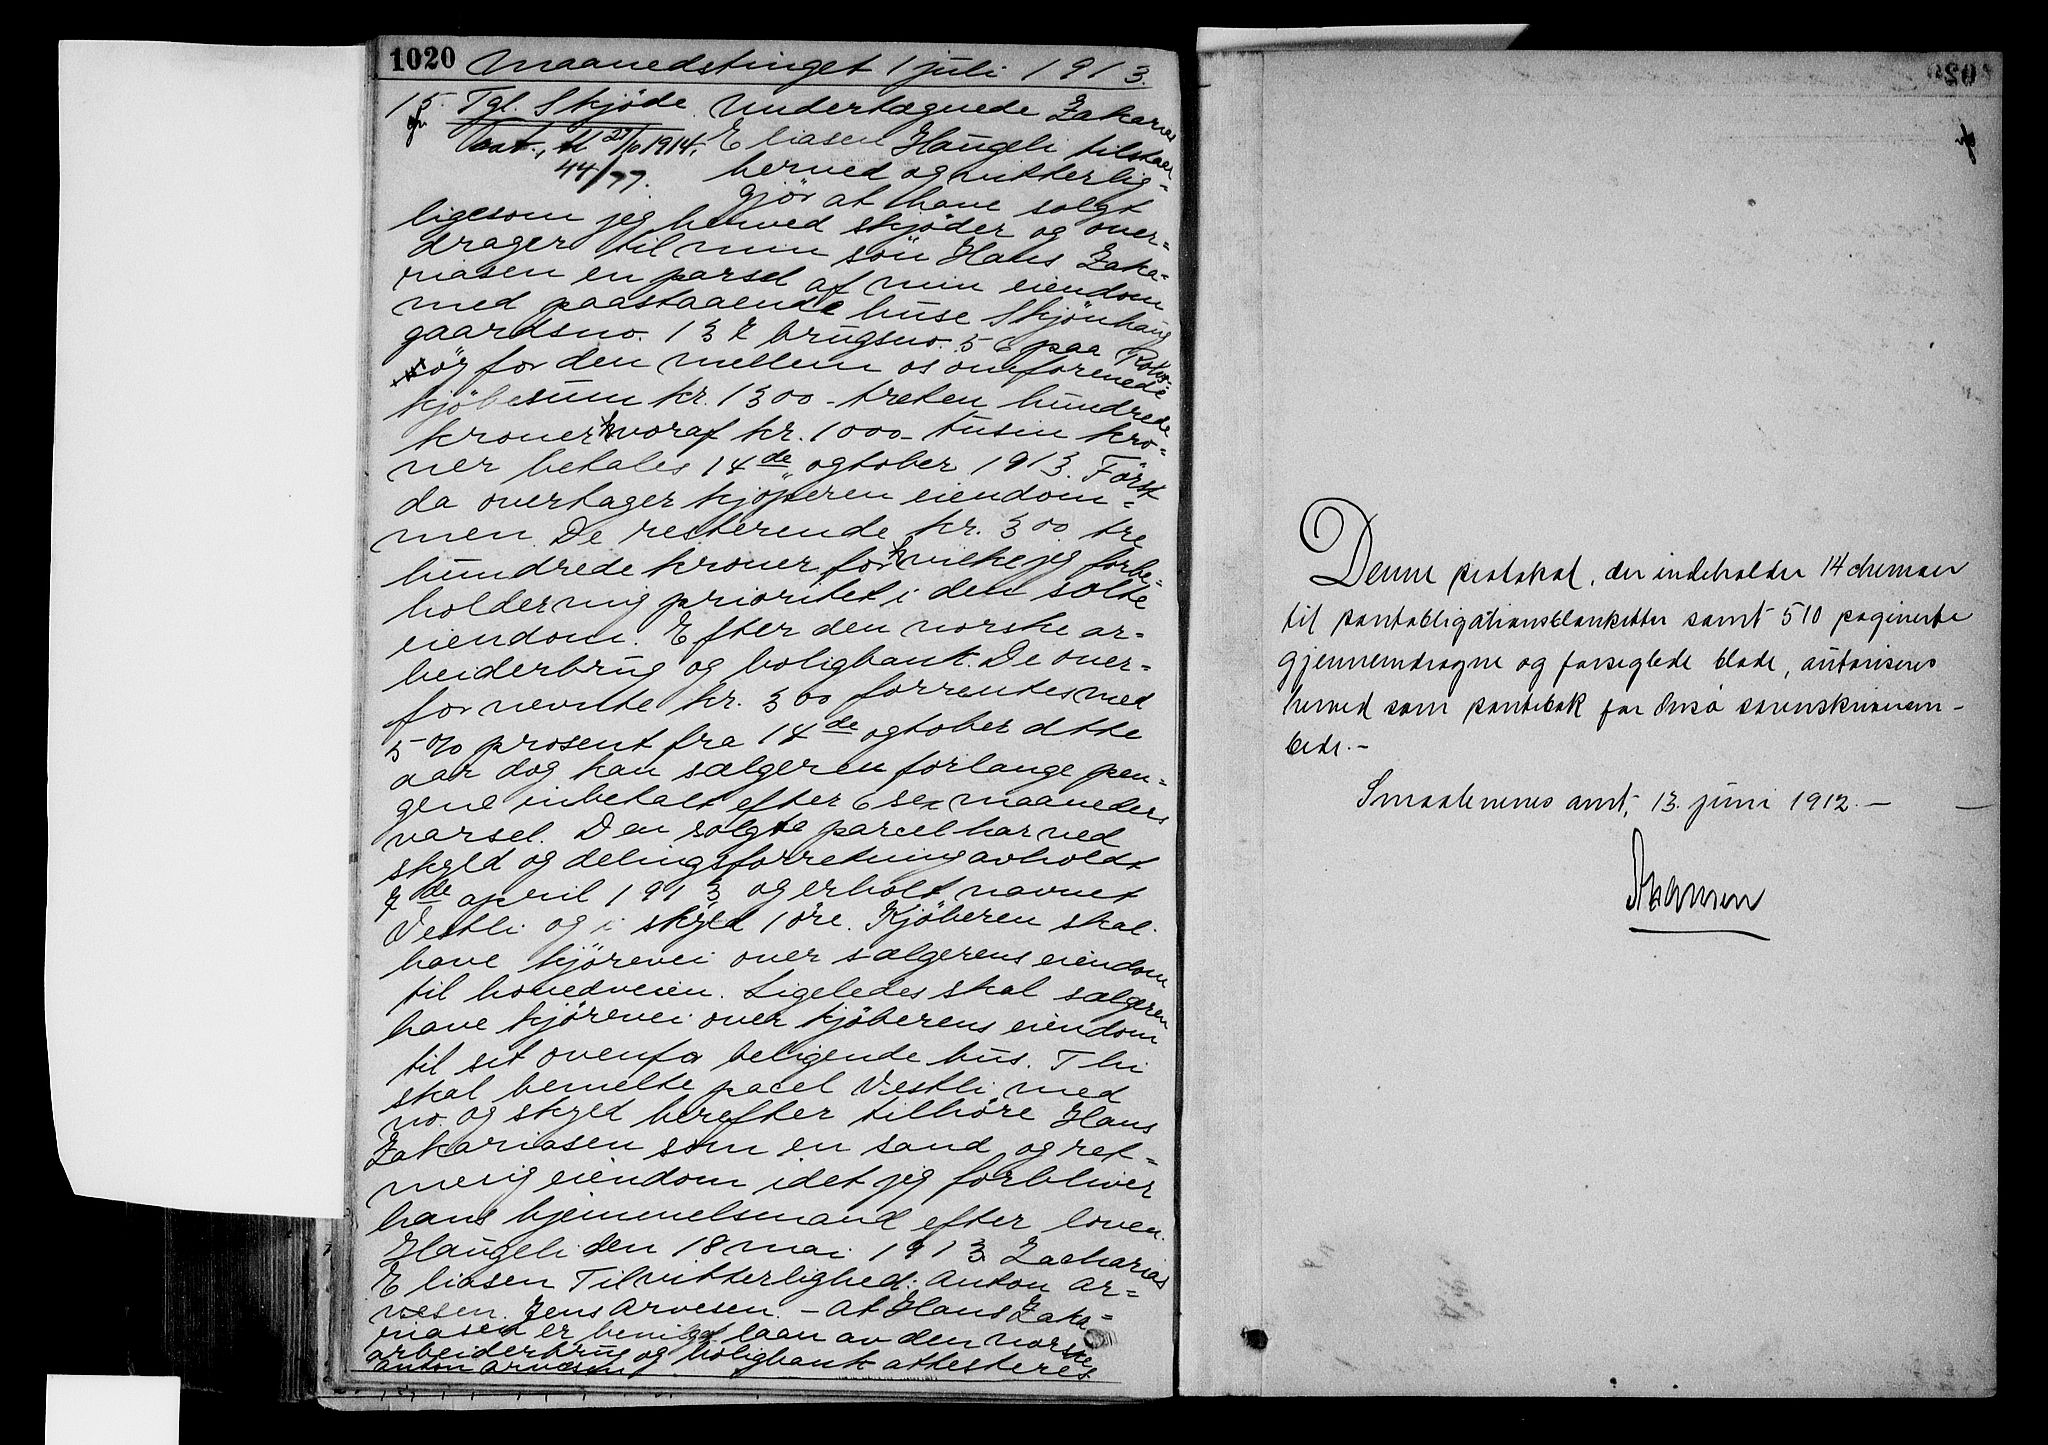 1020 Maanedstinget 1 juli 1913.
15. Tgl. Skjöde. Undertægnede Zakarias
Eliasen Haugeli tilstaar
1914,
44/77. herved og vitterlig-
gjör at have solgt
ligesom jeg herved skjöder og over-
drager til min sön Hans Zaka-
riasen en parsel af min eiendom
med paastaaende huse Skjönhaug
gaardsno. 132 brugsno. 56 paa
for den mellem os omforenede
kjöbesum kr. 1300 - tretten hundrede
kroner hvoraf kr. 1000 - tusin kro-
ner betales 14de ogtober 1913. Först
da overtager kjöperen eiendom-
men. De resterende kr. 300 tre
hundrede kroner for hvilke jeg forbe-
holder mig prioritet i den solte
eiendom. Efter den norske ar-
beiderbrug og boligbank. De over-
for nevnte kr. 300 forrentes med
5 % prosent fra 14de ogtober dtte
aar dog kan sælgeren forlange pen-
gene inbetalt efter 6 sex maaneders
varsel. Den solgte parcel har ved
skyld og delingsforretning avholdt
7de april 1913 og erholt navnet
Vestli og i skyld 1 öre. Kjöberen skal
have kjörevei over sælgerens eiendom
til hovedveien. Ligeledes skal sælgeren
have kjörevei over kjöberens eiendom
til sit ovenfor beligende hus. Thi
skal bemelte pacel Vestli med
no. og skyld herefter tilhöre Hans
Zakariasen som en sand og ret-
mesig eiendom idet jeg forbliver
hans hjemmelsmand efter loven.
Haugeli den 18 mai 1913 Zacharias
Eliasen Til vitterlighed: Anton Ar-
vesen. Jens Arvesen. - At Hans Zaka-
riasen er laan av den norske
arbeiderbrug og boligbank attesteres
Anton Arvesen
Denne protokol, der indeholder 14
til pantobligationsblanketter samt 510 paginerte
gjennemdragne og forseglede blade, autoriseres
herved som pantebok for Onsø sorenskriverem-
bede.-
Smaalenenes amt, 13. juni 1912.-